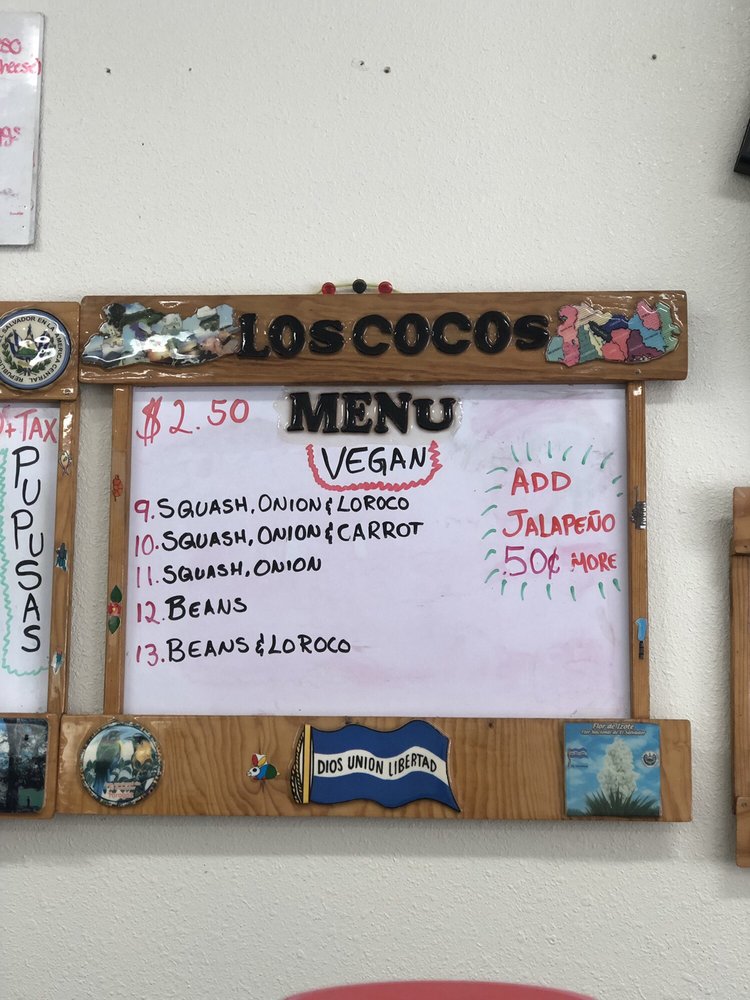 so
cheese)
LOS COCOS
EL SALVADOR EN LA AMERICA CENTRAL
+ TAX
PUPUSAS
$2.50
MENU
VEGAN
9. SQUASH, ONION & LOROCO
10. SQUASH, ONION & CARROT
11. SQUASH, ONION
12. BEANS
13. BEANS & LOROCO
ADD
JALAPEÑO
.50¢ MORE
DIOS UNION LIBERTAD
Flor de Izote
Flor Nacional de El Salvador